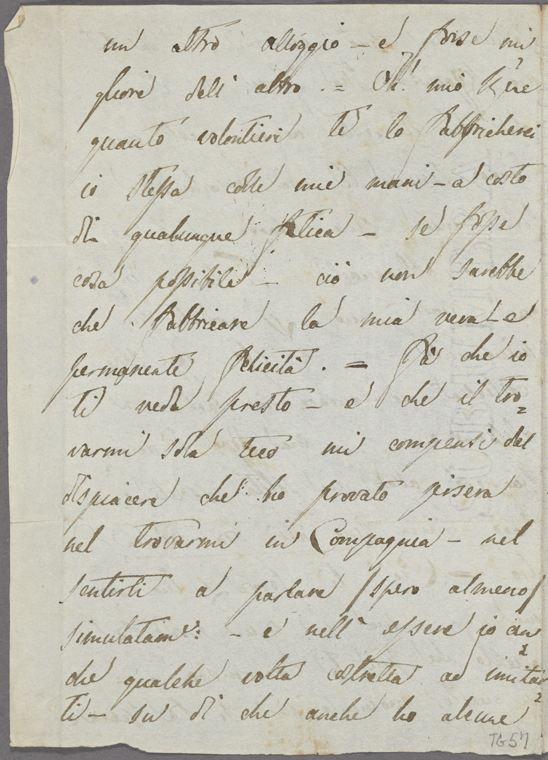 un altro alloggio – e forse mi
gliore dell' altro. = Oh! mio Bÿre
quanto volontieri te lo fabbricherei
io stessa colle mie mani – a costo
di qualunque fatica – se fosse
cosa possibile – ciò non sarebbe
che fabbricare la mia vera – e
permanente felicità. = Fà che io
ti veda presto – e che il tro=
varmi sola teco mi compensi del
dispiacere che ho provato jersera
nel trovarmi in Compagnia – nel
sentirti a parlare /spero almeno/
simulatamᵉ: – e nell' essere io an=
che qualche volta costretta ad imitar=
ti – su di che anche ho alcune
TG57